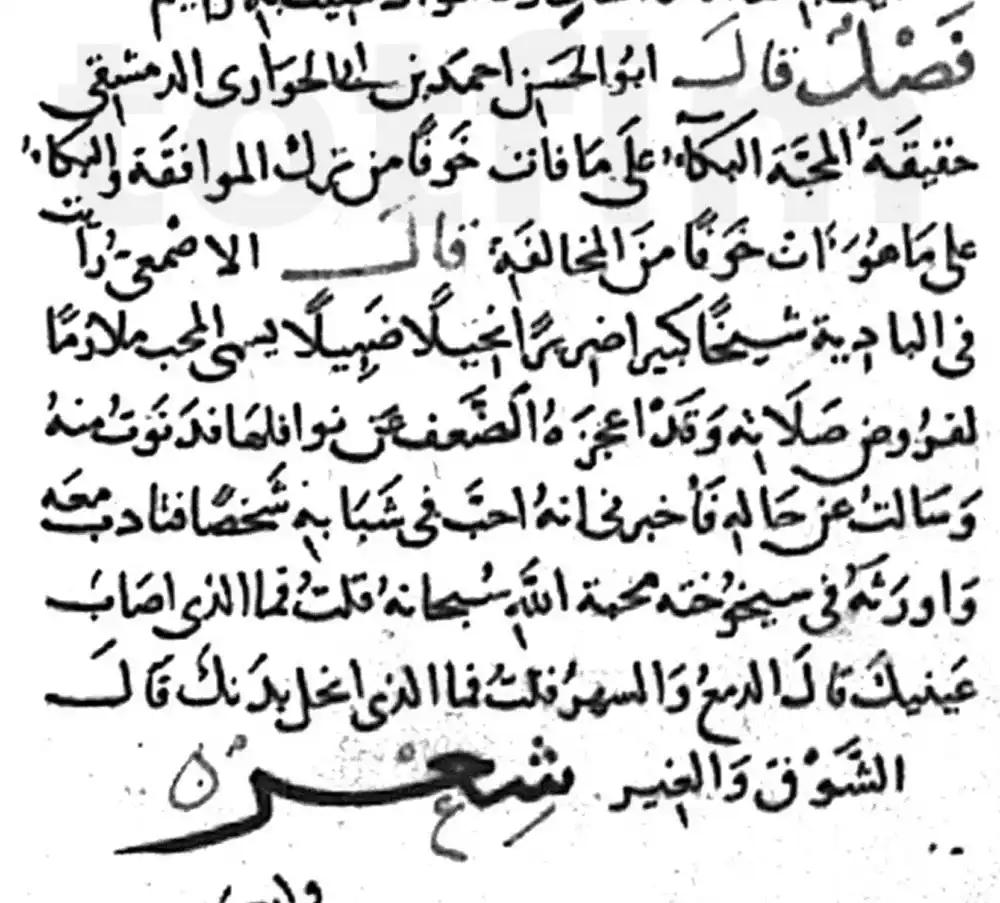 فَصْلٌ قالَ ابوالحَسَن احمدَبن ابىالحوَارى الدمشقى
حقيقَة المحبَّة البكآءُ علَى مَا فاتَ خَوفًا من تركِ الموافقَة والبكاءُ
على مَا هُوَ اتٍ خَوفًا منَ المخالفَةِ قالَ الاصْمعىُ رُاَيت
فى البادِية شيخًا كبيرا ضريرًا نحيلًا ضَئِيلًا يسمى المحب ملازمًا
لفروض صَلَاتِه وَقَدْ اعجزَهُ الضَّعف عَن نوافلها فدَنَوتُ منهُ
وَسَالتُ عَن حَالهِ فَأخبرنى انهُ احبَّ فى شَبَابِهِ شَخصًا فتادب معَه
وَاورَثَهُ فى شيخوُخته محبة اللَّهِ سُبحانهُ قلتُ فما الذى اصَابَ
عَينيكَ قالَ الدمعُ وَالسهرُ قلتُ فما الذى انحل بدَنكَ قَالَ
الشَّوْق وَالغِير شِعرٌ